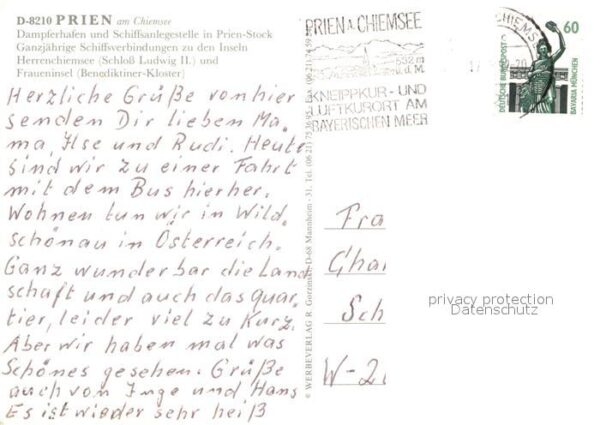 D-8210 PRIEN am Chiemsee
Dampferhafen und Schiffsanlegestelle in Prien-Stock
Ganzjährige Schiffsverbindungen zu den Inseln
Herrenchiemsee (Schloß Ludwig II.) und
Fraueninsel (Benediktiner-Kloster)
Herzliche Grüße von hier
senden Dir lieben Ma,
ma, Ilse und Rudi. Heute
sind wir zu einer Fahrt
mit dem Bus hierher.
Wohnen tun wir in Wild,
schönau in Österreich.
Ganz wunderbar die Land
schaft und auch das Quar,
tier, leider viel zu Kurz.
Aber wir haben mal was
Schönes gesehen. Grüße
auch von Inge und Hans
Es ist wieder sehr heiß
© WERBEVERLAG R. D-68 Mannheim - 31, Tel.
PRIEN A. CHIEMSEE
532 m
ü. d. M.
KNEIPPKUR- UND
LUFTKURORT AM
BAYERISCHEN MEER
CHIEMS
60
DEUTSCHE BUNDESPOST
BAVARIA MÜNCHEN
Fra
Char
Sch
W-2
privacy protection
Datenschutz